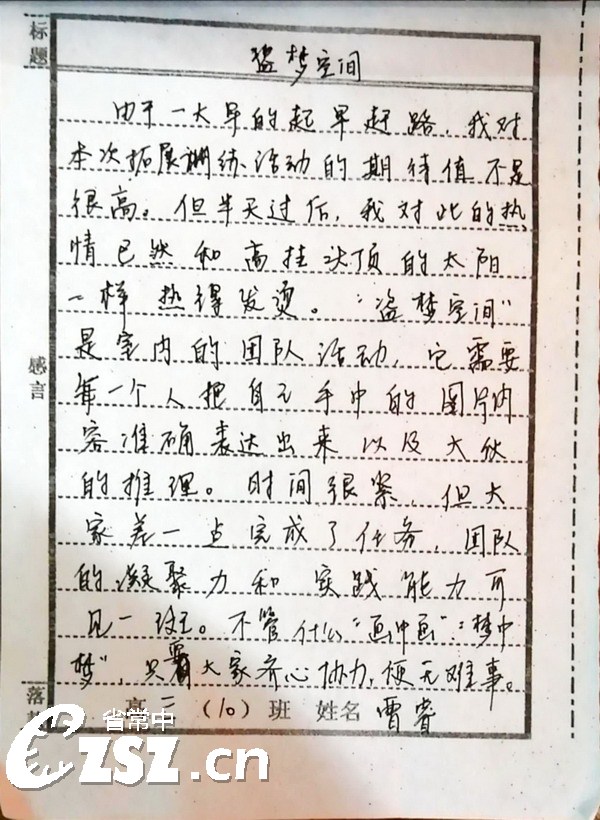 标题
盗梦空间
由于一大早的起早赶路,我对
本次拓展训练活动的期待值不是
很高。但半天过后,我对此的热
情已然和高挂头顶的太阳
一样热得发烫。“盗梦空间”
是室内的团队活动,它需要
每一个人把自己手中的图片内
容准确表达出来以及大伙
的推理。时间很紧,但大
家差一点完成了任务,团队
的凝聚力和实践能力可
见一斑。不管什么“画中画”“梦中
梦”,只需大家齐心协力,便无难事。
感言
落
高二(10)班 姓名
省常中
czsz.cn